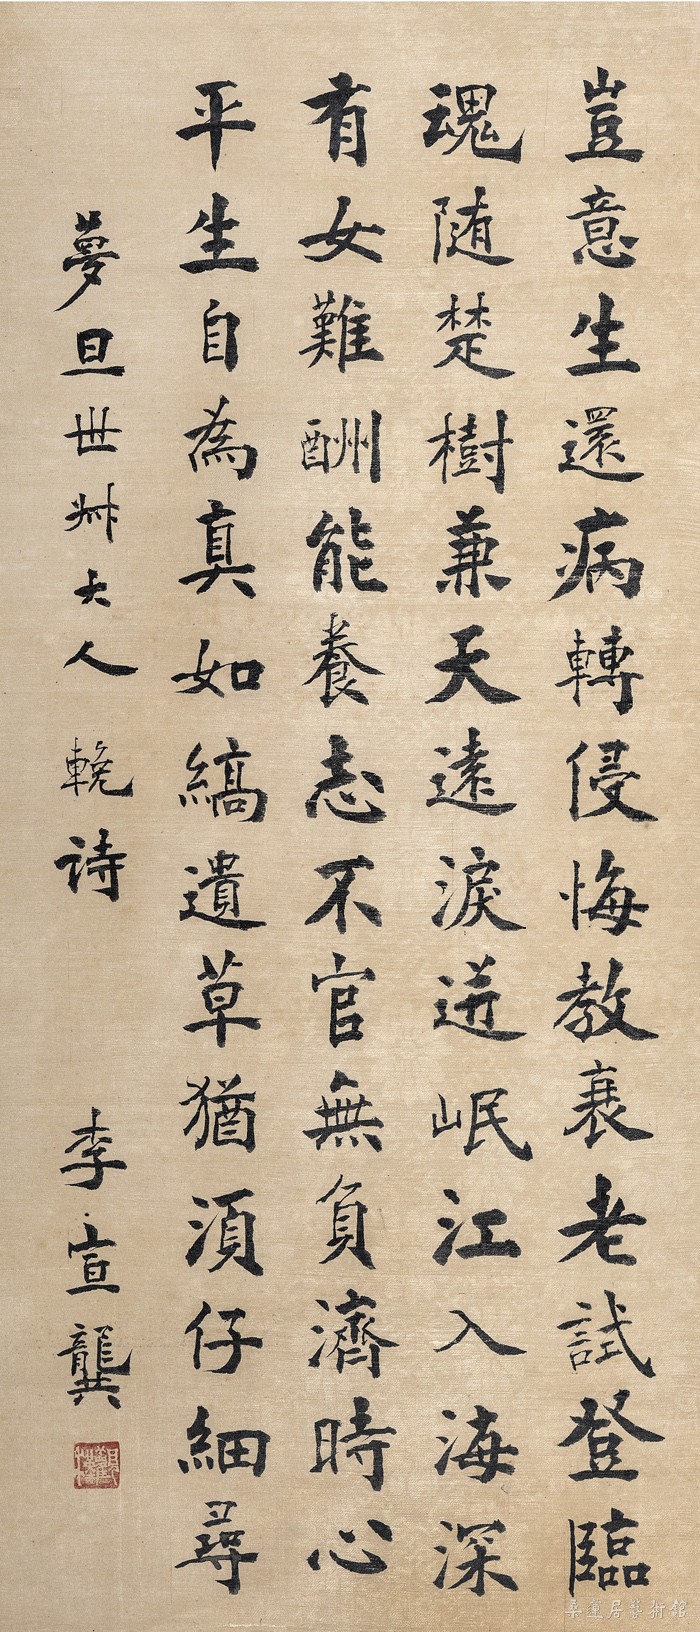 豈意生還病轉侵悔教衰老試登臨
魂隨楚樹兼天遠淚迸岷江入海深
有女難酬能養志不官無負濟時心
平生自為真如縞遺草猶須仔細尋
夢旦世丈大人 輓詩 李宣龔
桑蓮居藝術館